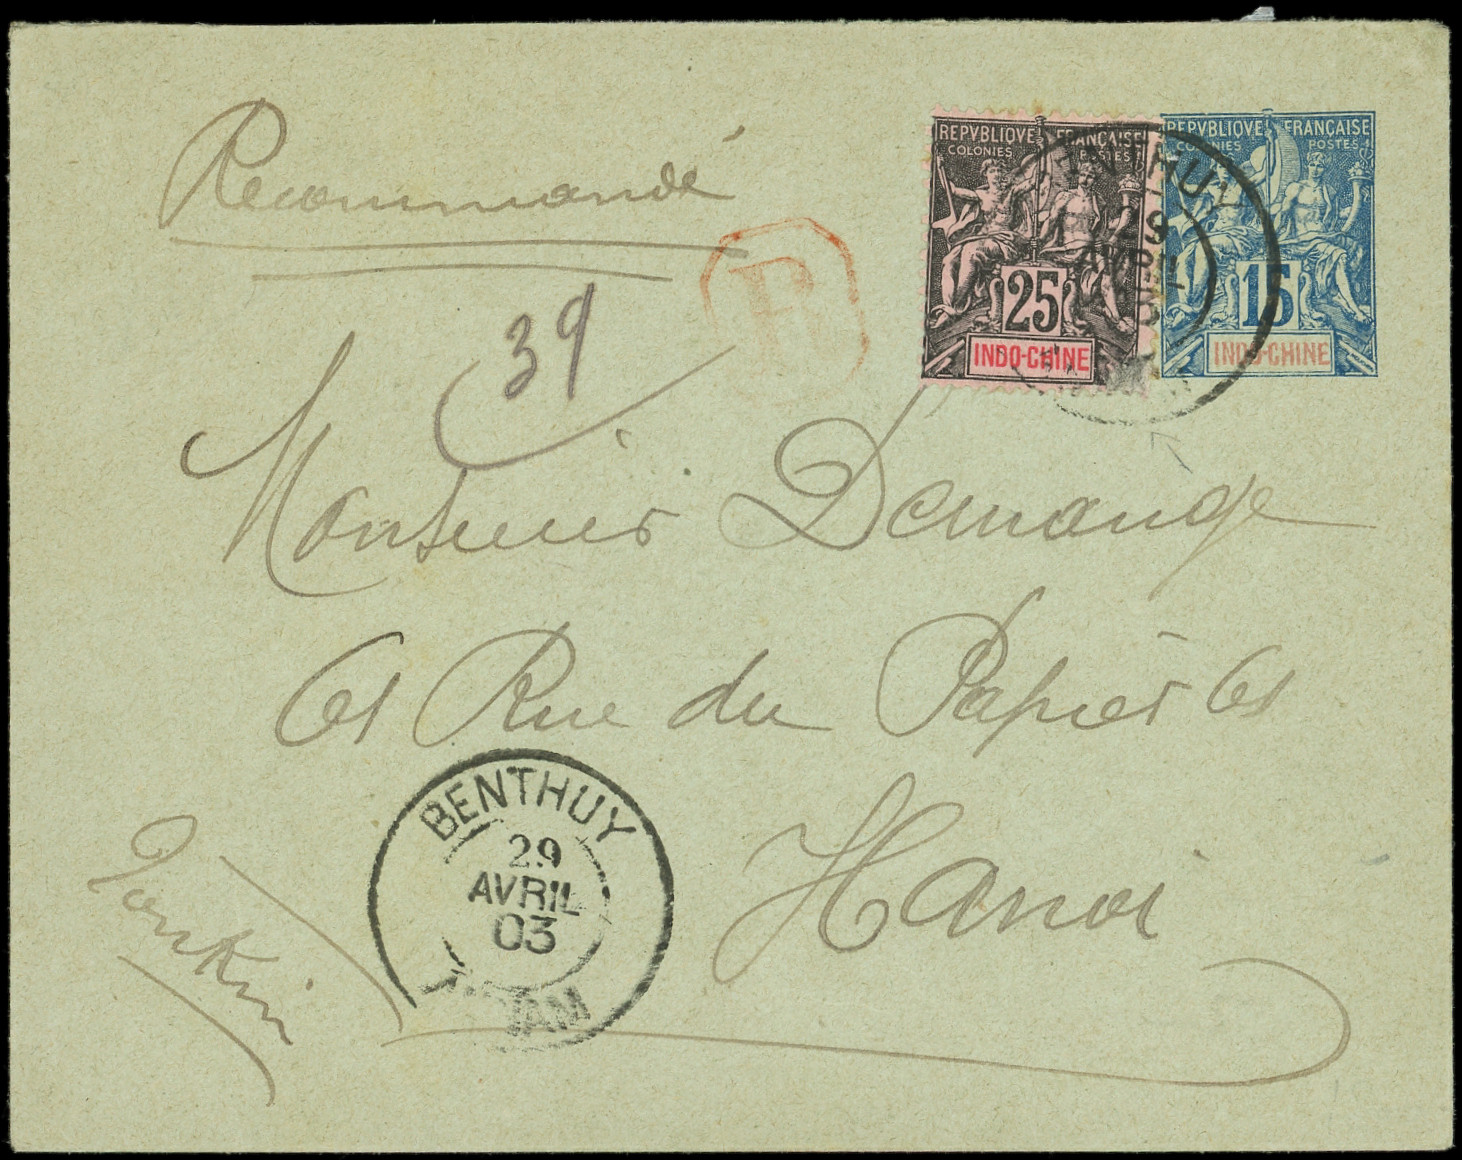 Recommandé
R
39
REPVBLIQVE FRANÇAISE
COLONIES POSTES
25
INDO-CHINE
REPVBLIQVE FRANÇAISE
POSTES
15
INDO-CHINE
AVRIL
Monsieur Demange
61 Rue du Papier 61
Hanoi
Tonkin
BENTHUY
29
AVRIL
03